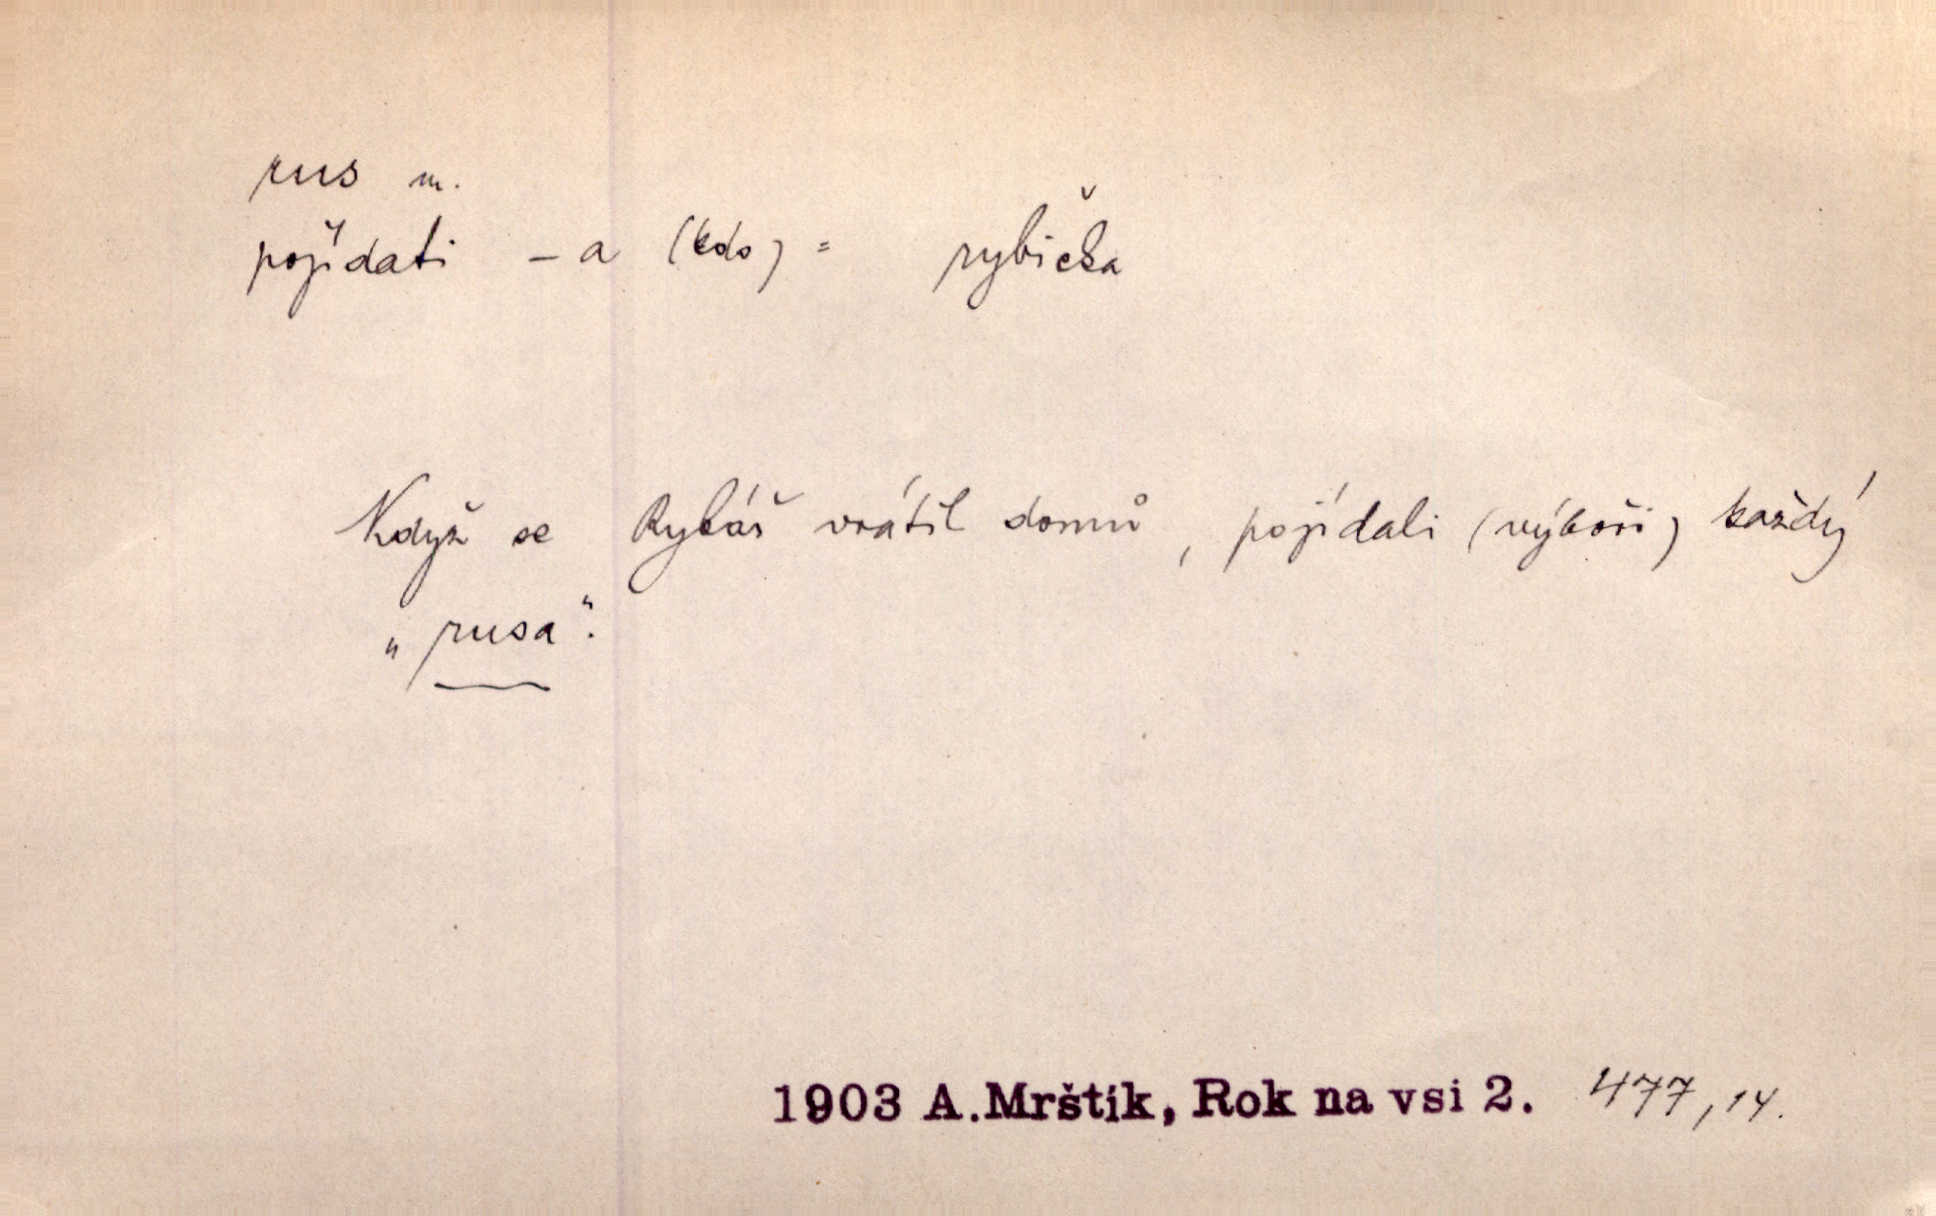 rus m.
pojídati – a (kdo) = rybička
Když se Rybáš vrátil domů, pojídali (výboři) každý
„rusa“.
1903 A.Mrštík, Rok na vsi 2. 477, 14.